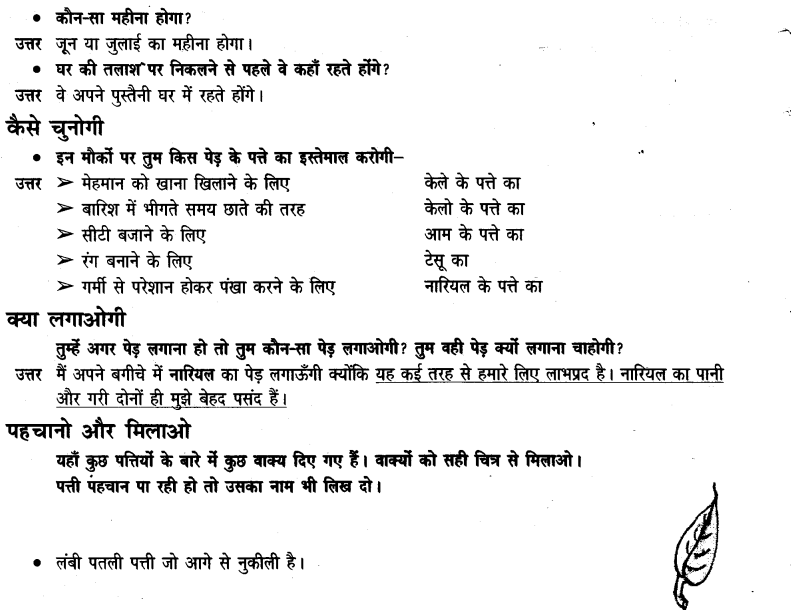 • कौन-सा महीना होगा?
उत्तर जून या जुलाई का महीना होगा।
• घर की तलाश पर निकलने से पहले वे कहाँ रहते होंगे?
उत्तर वे अपने पुस्तैनी घर में रहते होंगे।
कैसे चुनोगी
• इन मौकों पर तुम किस पेड़ के पत्ते का इस्तेमाल करोगी–
उत्तर ➢ मेहमान को खाना खिलाने के लिए केले के पत्ते का
➢ बारिश में भीगते समय छाते की तरह केलो के पत्ते का
➢ सीटी बजाने के लिए आम के पत्ते का
➢ रंग बनाने के लिए टेसू का
➢ गर्मी से परेशान होकर पंखा करने के लिए नारियल के पत्ते का
क्या लगाओगी
तुम्हें अगर पेड़ लगाना हो तो तुम कौन-सा पेड़ लगाओगी? तुम वही पेड़ क्यों लगाना चाहोगी?
उत्तर मैं अपने बगीचे में नारियल का पेड़ लगाऊँगी क्योंकि यह कई तरह से हमारे लिए लाभप्रद है। नारियल का पानी
और गरी दोनों ही मुझे बेहद पसंद हैं।
पहचानो और मिलाओ
यहाँ कुछ पत्तियों के बारे में कुछ वाक्य दिए गए हैं। वाक्यों को सही चित्र से मिलाओ।
पत्ती पहचान पा रही हो तो उसका नाम भी लिख दो।
• लंबी पतली पत्ती जो आगे से नुकीली है।